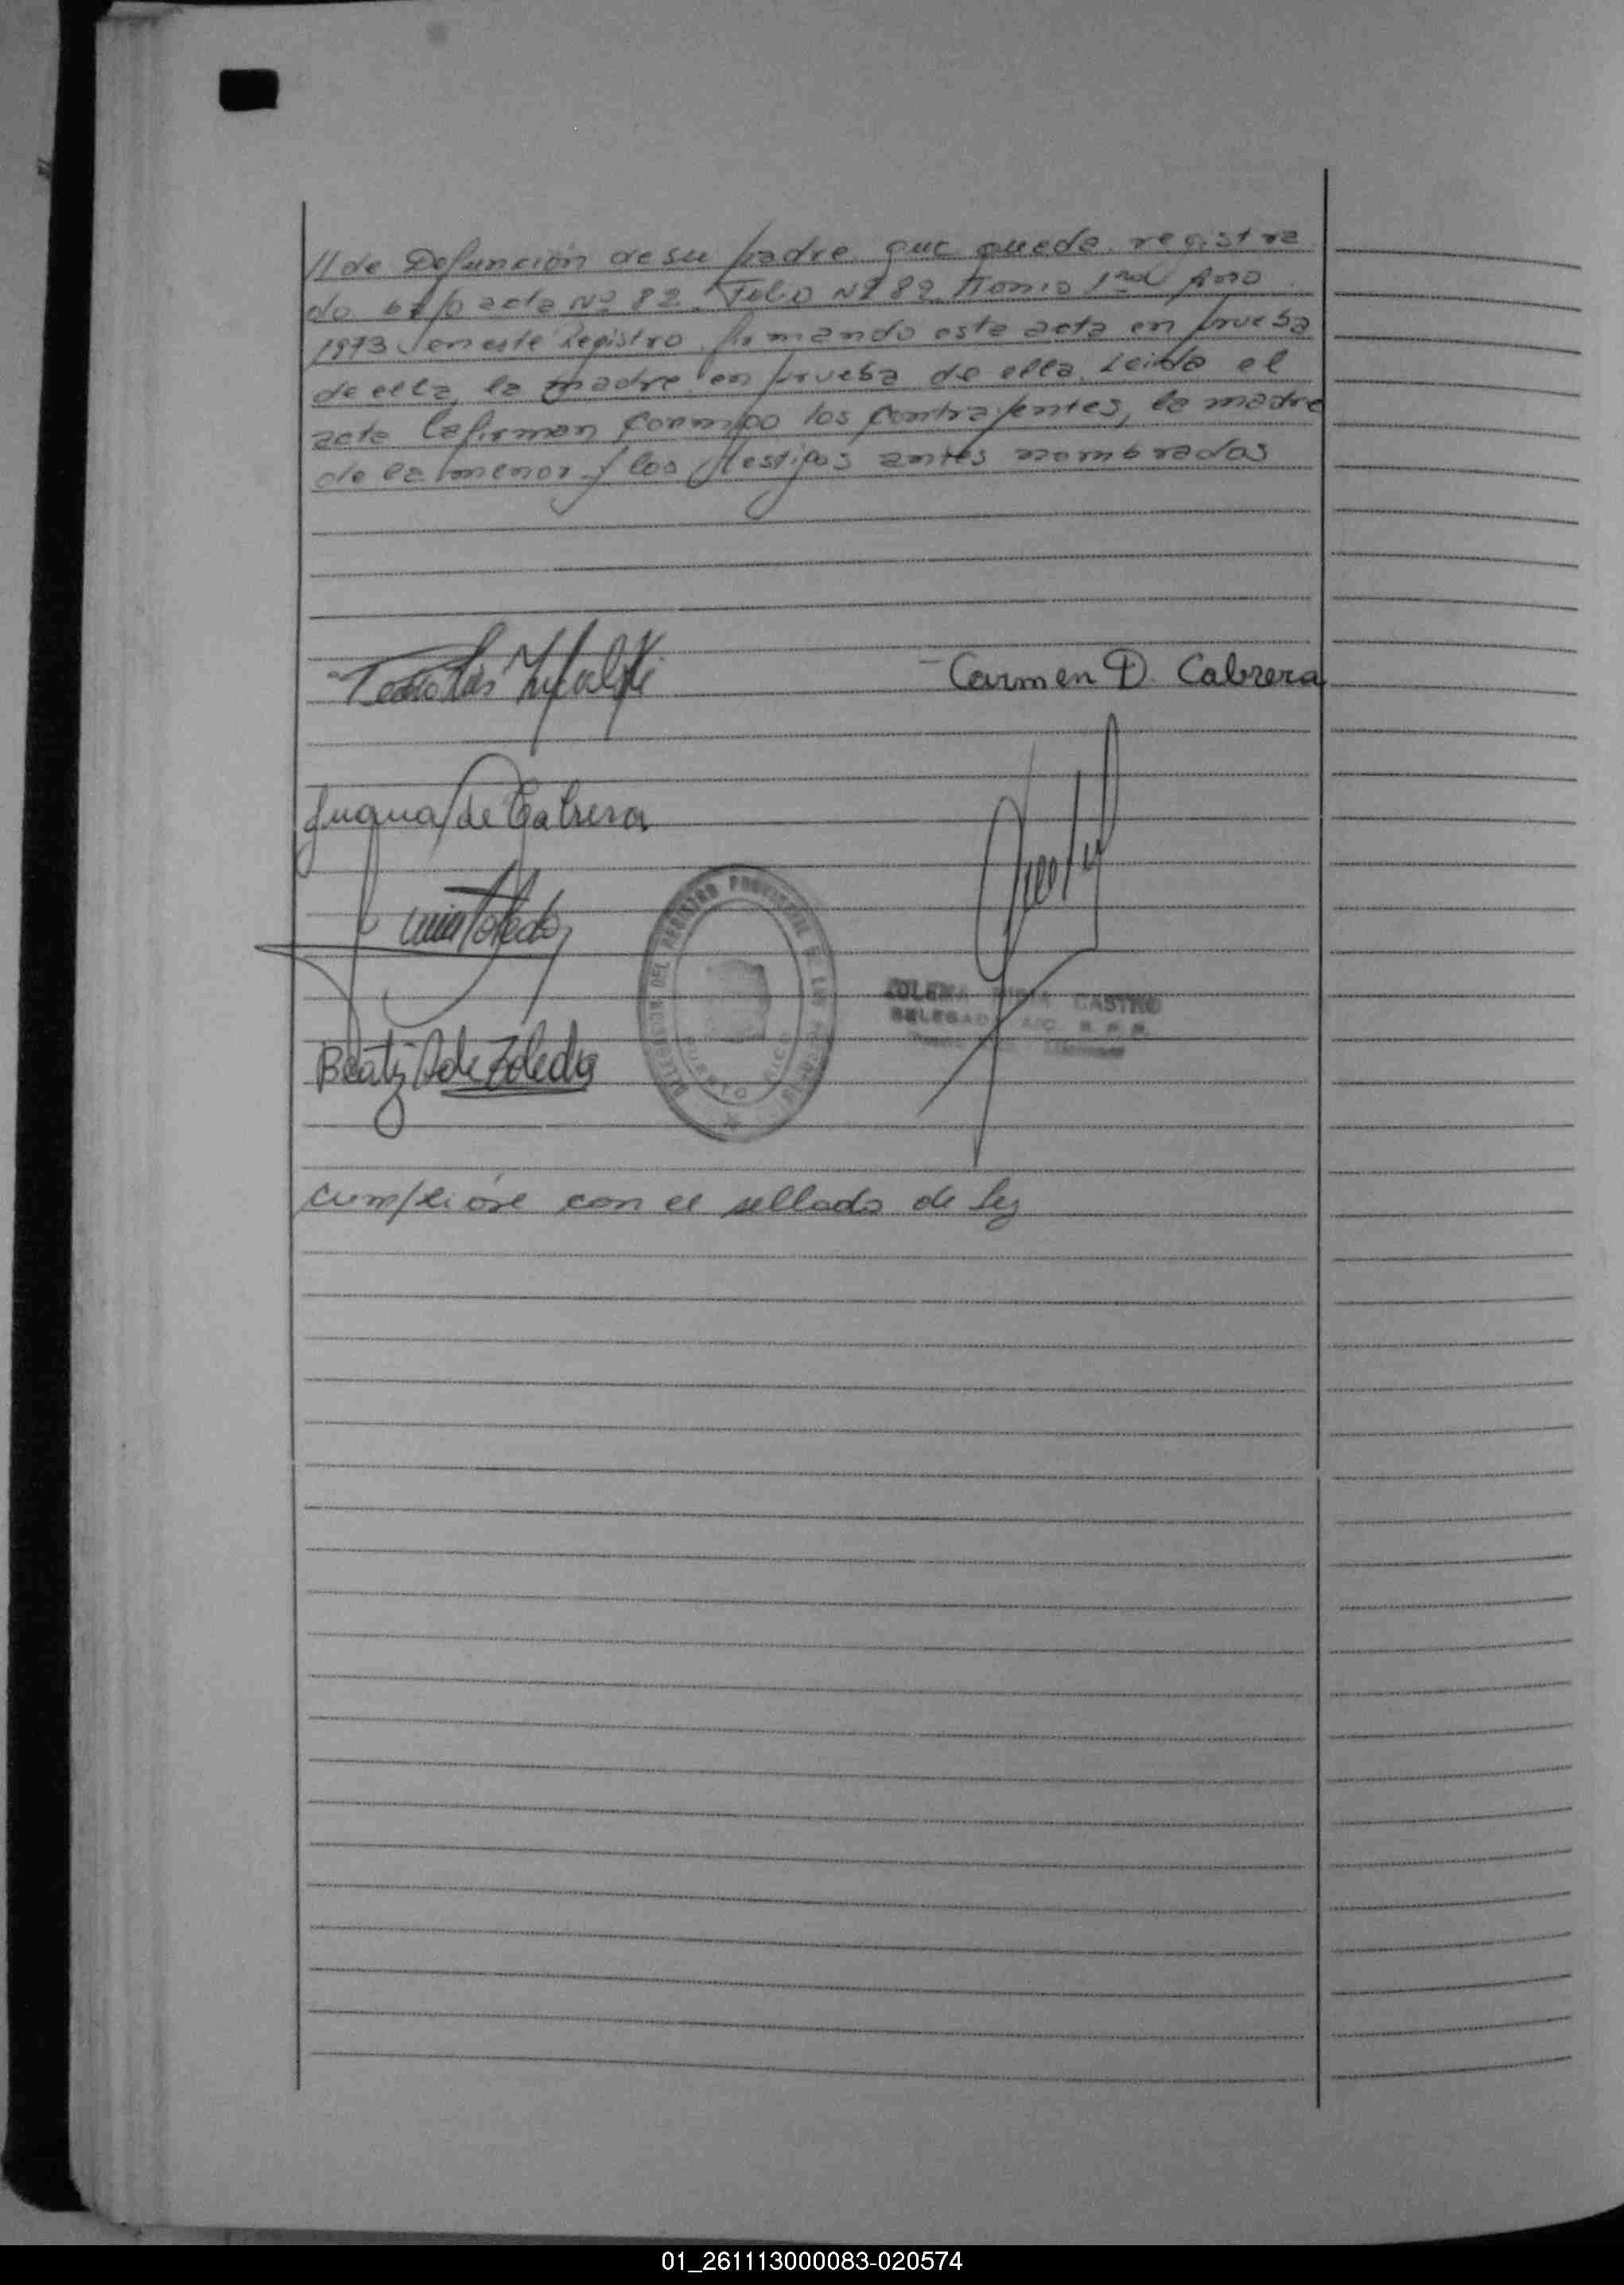 //de Defunción de su padre que queda registra
do bajo acta Nº 82. Folio Nº 82 Tomo 1ro Año
1973 en este Registro firmando esta acta en prueba
de ella, la madre en prueba de ella. Leida el
acta la firman conmigo los contrayentes, la madre
de la menor y los testigos antes nombrados
Carmen D. Cabrera
Juana de Cabrera
Luis Toledo
DELEGACION DEL REGISTRO PROVINCIAL DE LAS PERSONAS
PUERTO RICO
CASTRO
DELEGADA A/C. R. P. P.
Beatriz A de Toledo
Cumplióse con el sellado de Ley
01_261113000083-020574